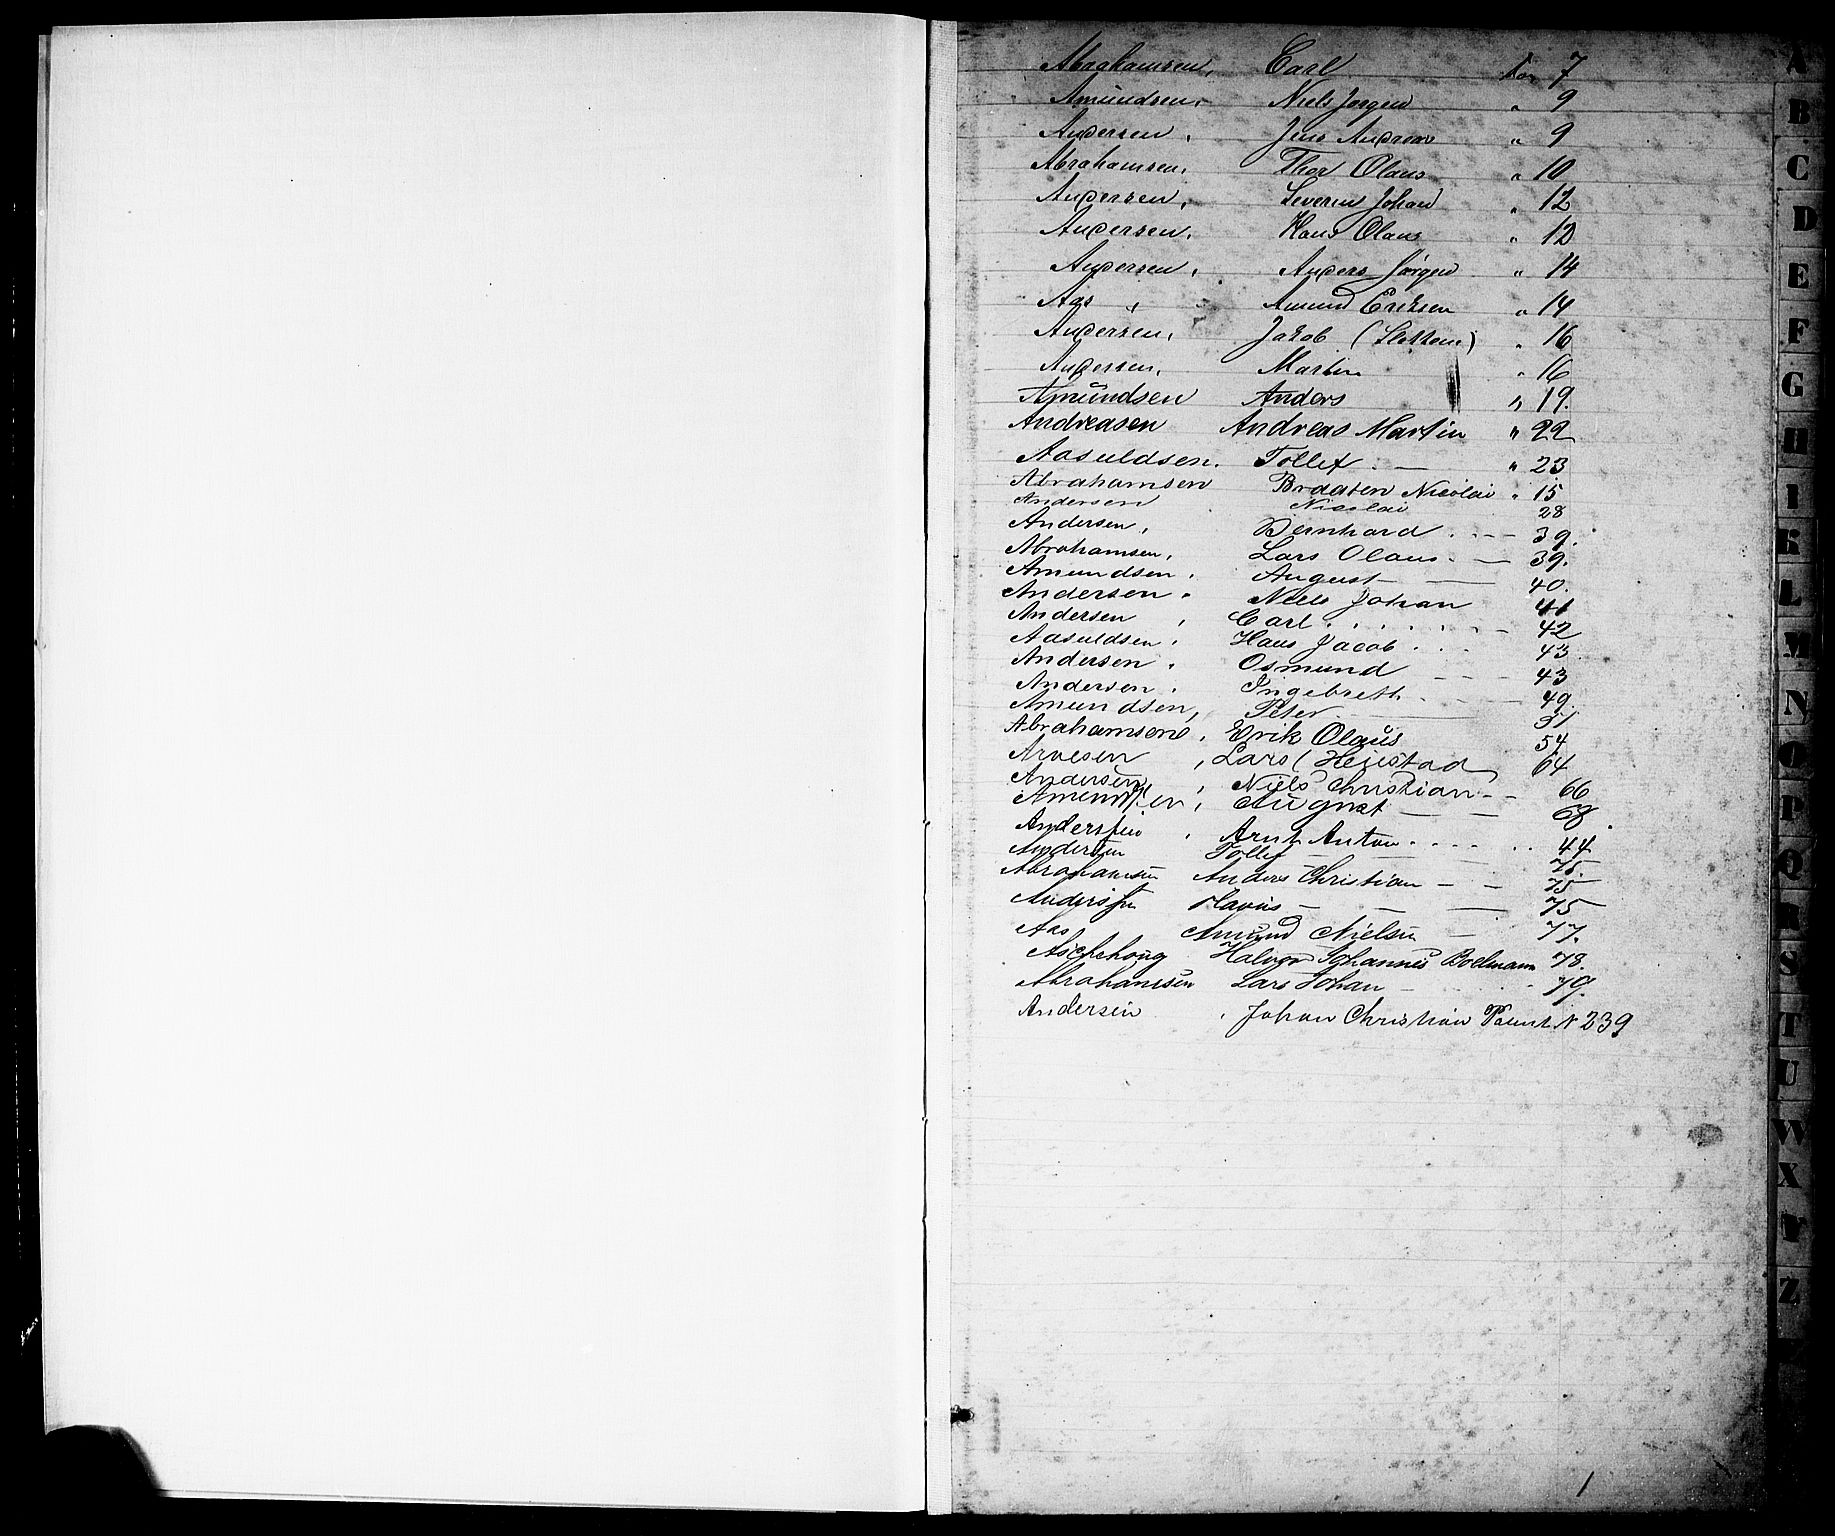 Abrahamsen, Carl 7
Amundsen, Niels Jørgen " 9
Andersen, Jens Andreas " 9
Abrahamsen, Thor Olaus " 10
Andersen, Severin Johan " 12
Andersen, Hans Olaus " 12
Andersen, Anders Jørgen " 14
Aas, Amund Eriksen " 14
Andersen, Jakob (Slettene) " 16
Andersen, Martin " 16
Amundsen Anders " 19.
Andreasen Andreas Martin " 22
Aasuldsen. Tollef. — " 23
Abrahamsen Braaten Nicolai " 15
Andersen Nicolai 28
Andersen, Bernhard 39.
Abrahamsen, Lars Olaus. — 39.
Amundsen. August 40.
Andersen. Niels Johan 41
Andersen, Carl 42
Aasuldsen. Hans Jacob 43
Andersen. Osmund 43
Andersen. Ingebreth 49.
Amundsen, Peter 51
Abrahamsen, Erik Olaus 54
Arvesen, Lars (Heistad) 64
Andersen, Niels Christian 66
Amundsen, August 68.
Anderssen, Arnt Anton 44
Andersen Tollef 75.
Abrahamsen Anders Christian 75
Anderssen Mavus 75
Aas Amund Nielsen 77.
Aschehoug Halvor Johannes Bollmann 78.
Abrahamsen Lars Johan 79.
Andersen, Johan Christian Patent N 239
1
A
B
C
D
E
F
G
H
I
K
L
M
N
O
P
Q
R
S
T
U
W
X
Y
Z